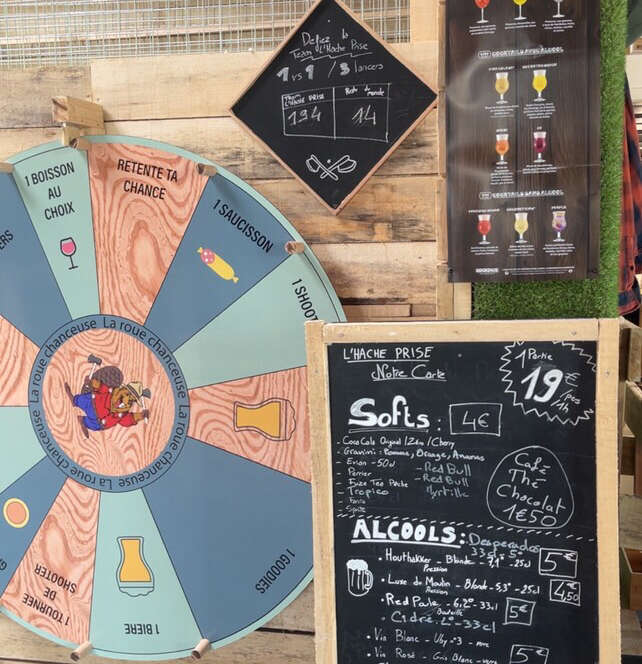 Défiez la
Team L'Hache Prise
1 vs 1 / 3 lancers
TEAM L'HACHE PRISE
Reste du monde
194
14
COCKTAILS AVEC ALCOOL
COCKTAILS SANS ALCOOL
1 BOISSON
AU
CHOIX
RETENTE TA
CHANCE
1 SAUCISSON
1 SHOOT
La roue chanceuse La roue chanceuse La roue chanceuse La roue chanceuse
1 GOODIES
1 BIÈRE
1 TOURNÉE
DE
SHOOTER
ERS
L'HACHE PRISE
Notre Carte
1 Partie
19€
/pers
1h
Softs : 4€
- Coca Cola Original / Zéro / Cherry
- Granini : Pomme, Orange, Ananas
- Evian - 50cl
- Perrier
- Fuze Tea Pêche
- Tropico
- Fanta
- Sprite
- Red Bull
- Red Bull
Myrtille
Café
Thé
Chocolat
1€50
ALCOOLS :
Desperados
33cl - 5°
5€
• Houthakker - Blonde - 7,1° - 25cl
Pression
• Luxe du Moulin - Blonde - 5,3° - 25cl
Pression
4,50
• Red Poule - 6,2° - 33cl
Bouteille
5€
• Cidre 2° - 33cl
• Vin Blanc - Uby n°3 - verre
• Vin Rosé - Gris Blanc - verre
5€